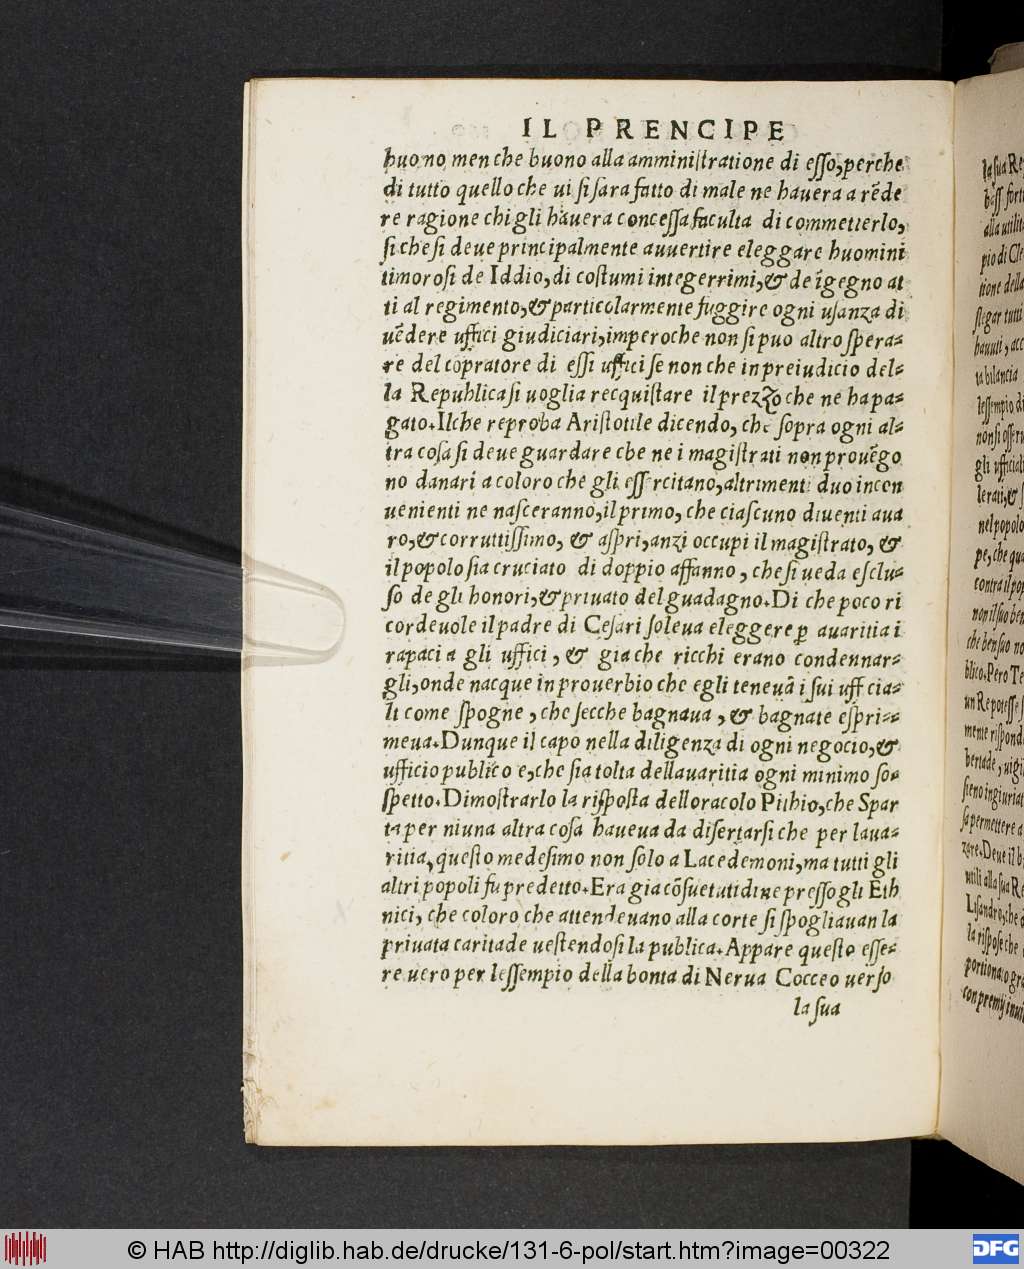 IL PRENCIPE
huo no, men che buono alla amminiſtratione di eſſo, perche
di tutto quello che ui ſi ſara fatto di male ne hauera a rẽde
re ragione chi gli hauera conceſſa faculta di commetterlo,
ſi che ſi deue principalmente auuertire eleggare huomini
timoroſi de Iddio, di coſtumi integerrimi, & de ĩgegno at
ti al regimento, & particolarmente fuggire ogni uſanza di
uẽdere uffici giudiciari, imperoche non ſi puo altro ſpera-
re del cõpratore di eſſi uffici ſe non che in preiudicio del-
la Republica ſi uoglia recquiſtare il prezzo che ne ha pa-
gato. Il che reproba Ariſtotile dicendo, che ſopra ogni al-
tra coſa ſi deue guardare che ne i magiſtrati non prouẽgo
no danari a coloro che gli eſſercitano, altrimenti duo incon
uenienti ne naſceranno, il primo, che ciaſcuno diuenti aua
ro, & corruttiſſimo, & aſpri, anzi occupi il magiſtrato, &
il popolo ſia cruciato di doppio affanno, che ſi ueda eſclu-
ſo de gli honori, & priuato del guadagno. Di che poco ri
cordeuole il padre di Ceſari ſoleua eleggere ꝑ auaritia i
rapaci a gli uffici, & gia che ricchi erano condennar-
gli, onde nacque in prouerbio che egli teneuã i ſui ufficia-
li come ſpogne, che ſecche bagnaua, & bagnate eſpri-
meua. Dunque il capo nella diligenza di ogni negocio, &
ufficio publico e, che ſia tolta dellauaritia ogni minimo ſo-
ſpetto. Dimoſtrarlo la riſpoſta delloracolo Pithio, che Spar
ta per niuna altra coſa haueua da diſertarſi che per laua-
ritia, queſto medeſimo non ſolo a Lacedemoni, ma tutti gli
altri popoli fu predetto. Era gia cõſuetuti dire preſſo gli Eth
nici, che coloro che attendeuano alla corte ſi ſpogliauan la
priuata caritade ueſtendoſi la publica. Appare queſto eſſe-
re uero per leſſempio della bonta di Nerua Cocceo uerſo
la ſua
la ſua Re
alla utilit
pio di Cle
tione della
ſlegar tutti
hauuti, acc
ta bilancia
leſſempio di
non ſi oſſeru
gli ufficiali
lerati, & ſ
nel popolo
pe, che qua
contra il pop
non il ſuo ben
che ben ſuo no
blico. Pero Te
un Re poteſſe ſ
mente riſpond
bertade, uigi
ſieno ingiuriat
ſa permettere a
zare. Deue il b
utili alla ſua Re
Liſandro, che d
la riſpoſe che
portionato gra
con premij inui
© HAB http://diglib.hab.de/drucke/131-6-pol/start.htm?image=00322
DFG